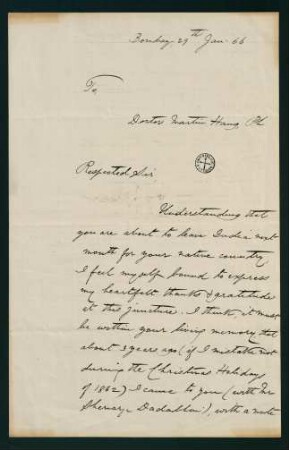 Bombay 29th Jan. 66
To,
Doctor Martin Haug, Ph
Respected Sir
Understanding that
you are about to leave India next
month for your native country
I feel myself bound to express
my heartfelt thanks & gratitude
at this juncture. I think it must
be within your living memory that
about 3 years ago (if I mistake not
during the Christmas Holiday
of 1862) I came to you (with Mr
Dadabhai), with a note